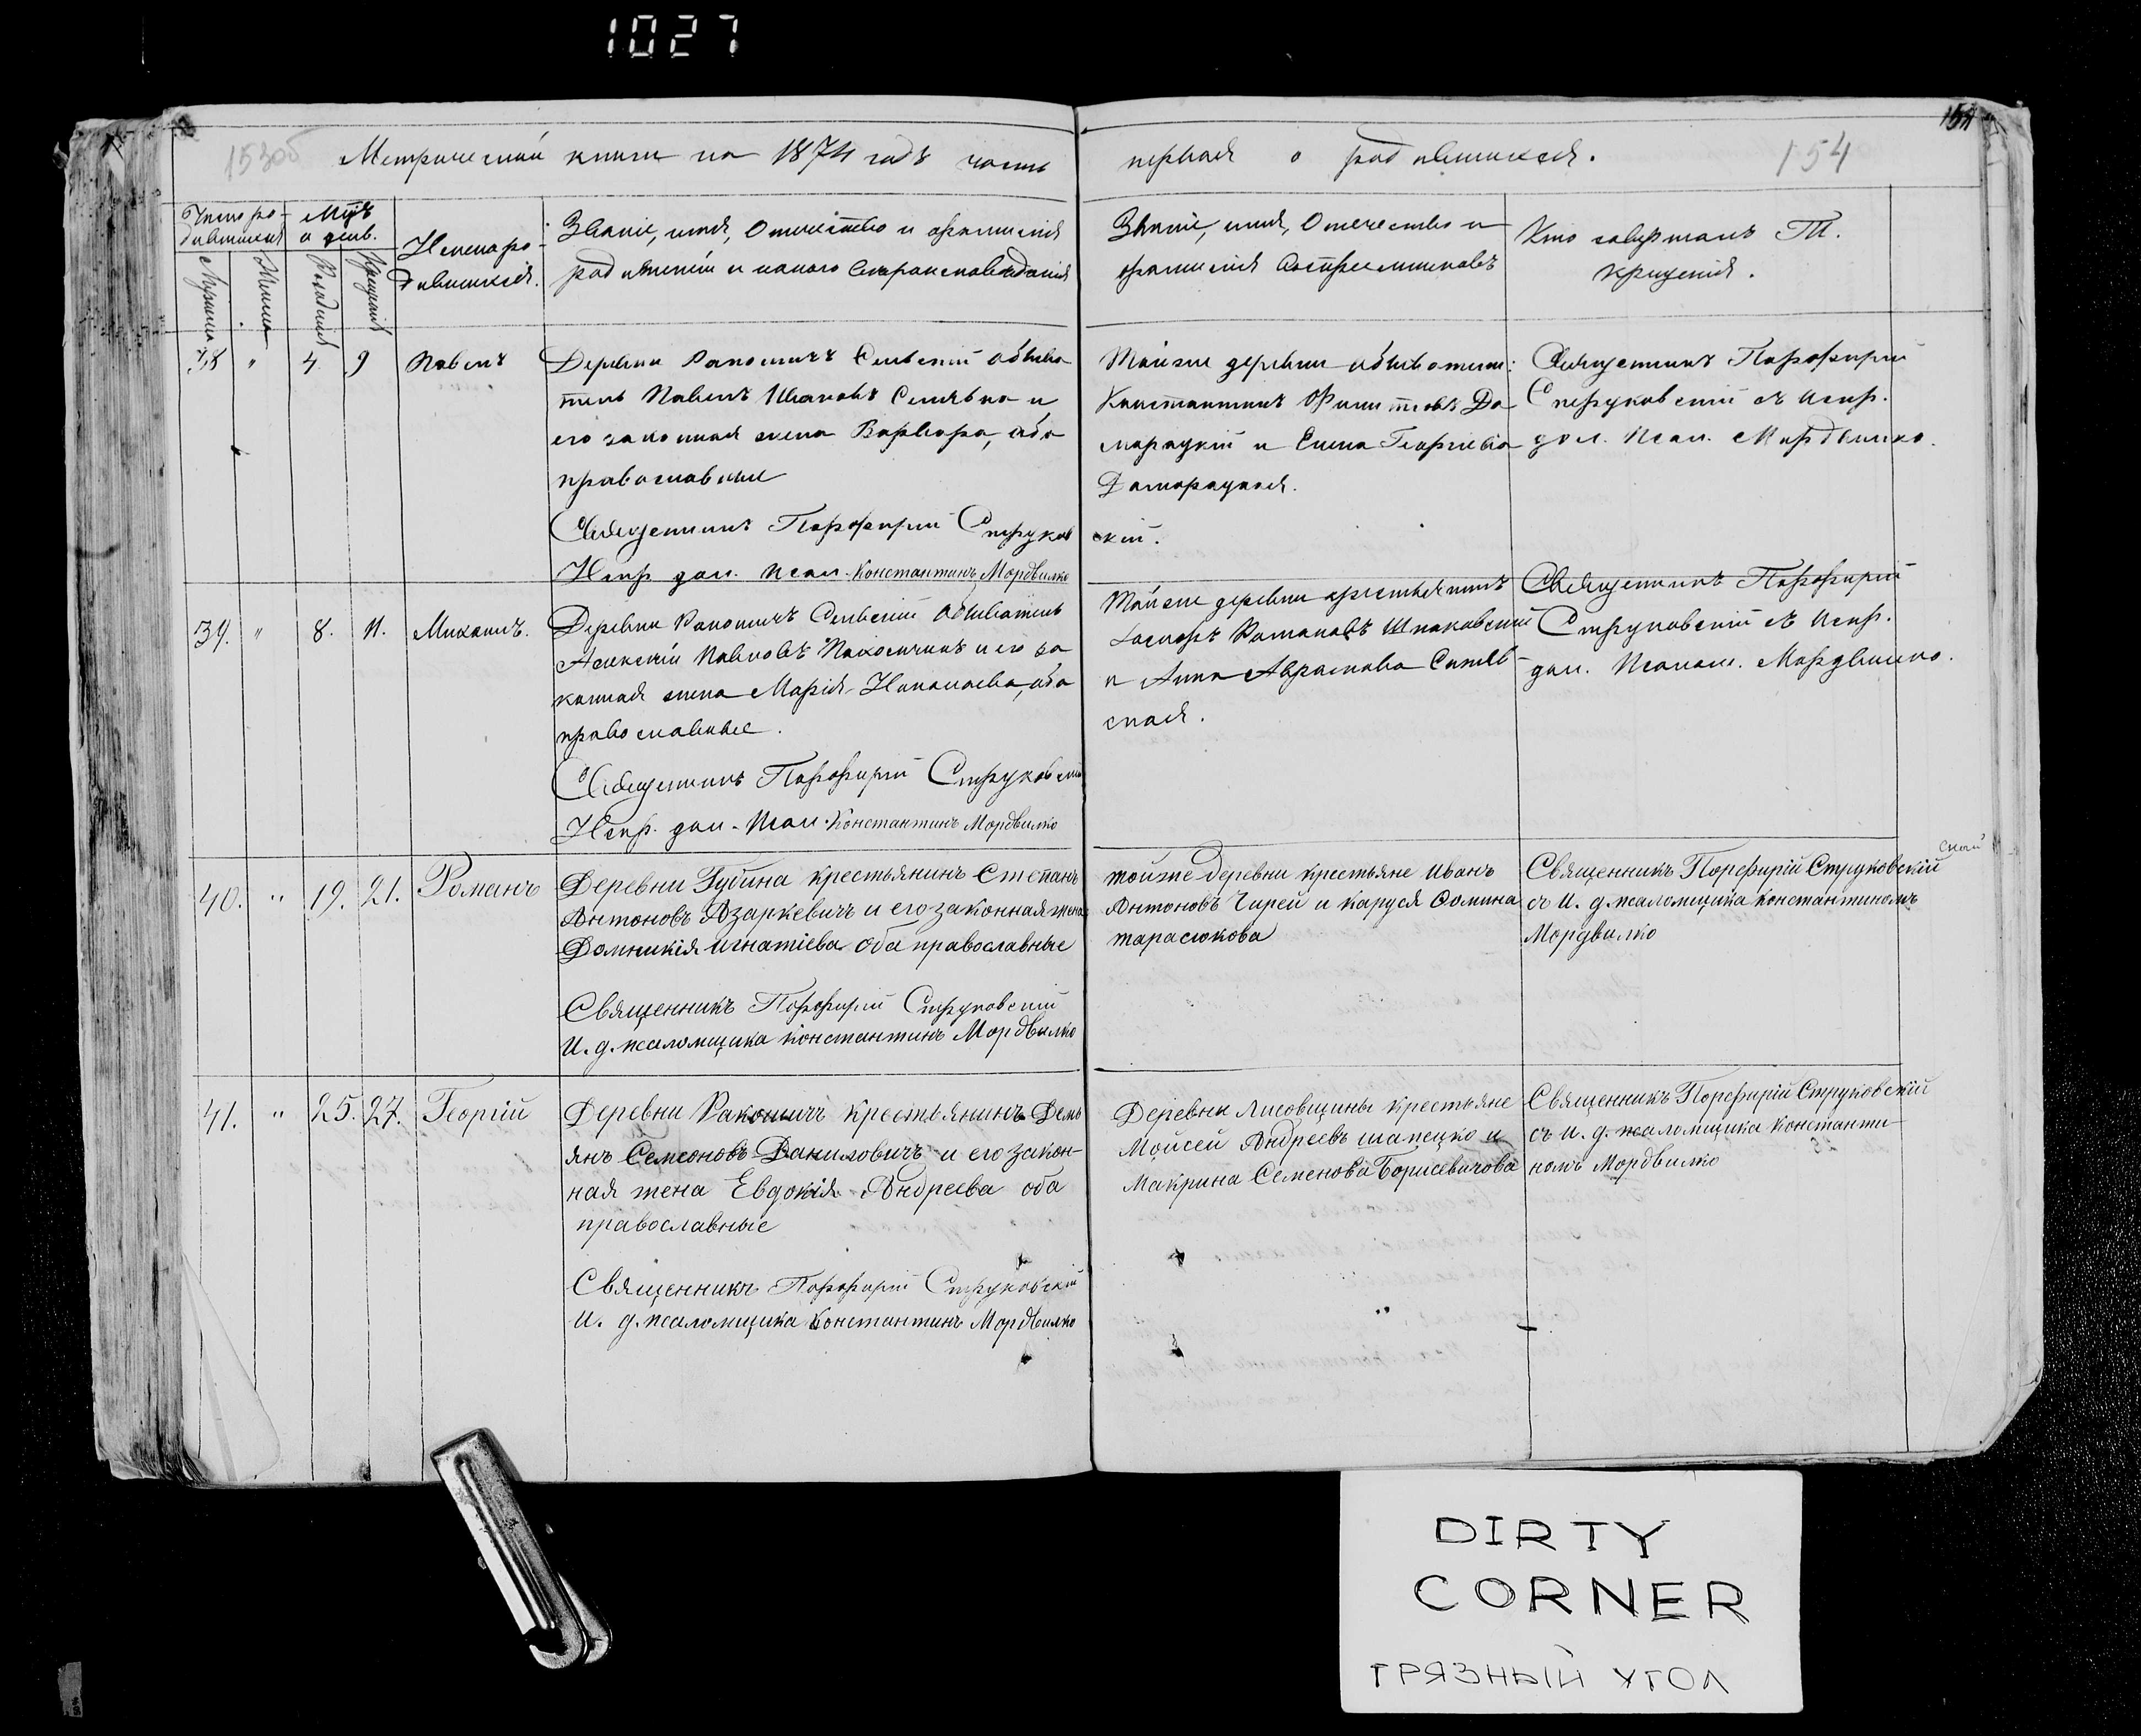 1027
153об Метрической книги на 1874 годъ часть
первая о родившихся.
154
Число ро-
дившихся
Мцъ
и день.
Мужска
Женска
Рожденія
Крещенія
Имена ро-
дившихся.
Званіе, имя, Отчество и фамилія
родителей и какого вѣроисповѣданія
Званіе, имя, Отчество и
фамилія воспріемниковъ
Кто совершалъ Т.
крещенія.
38 " 4 9 Павелъ
Деревни Раковичъ Сельскій обыва
тель Павелъ Ивановъ
его законная жена Варвара, оба
православные
Священникъ Порфирій Струков
Испр. дол. Псал. Константинъ Мордвилко
Тойже деревни обыватели:
Константинъ Филиповъ До
марацкій и Елена Георгіева
Домарацкая.
скій.
Священникъ Порфирій
Струковскій съ испр.
дол. Псал. Мордвилко.
39. " 8. 11. Михаилъ.
Деревни Раковичъ Сельскій обыватель
Алексѣй Павловъ и его за
конная жена Марія Николаева, оба
православные.
Священникъ Порфирій Струковскій
Испр. дол. Псал. Константинъ Мордвилко
Тойже деревни крестьянинъ
Романовъ Шпаковскій
и Анна Авраамова
ская.
Священникъ Порфирій
Струковскій съ Испр.
дол. Псалом. Мордвилко.
40. " 19. 21. Романъ
Деревни Губина крестьянинъ Степанъ
Антоновъ Азаркевичъ и его законная жена
Домникія Игнатіева оба православные
Священникъ Порфирій Струковскій
И. д. псаломщика Константинъ Мордвилко
тойже деревни крестьяне Иванъ
Антоновъ Чирей и Каруся Сомина
тарасюкова
Священникъ Порфирій Струковскій
съ И. д. псаломщика Константиномъ
Мордвилко
41. " 25. 27. Георгій
Деревни Раковичъ крестьянинъ Демь
янъ Семеоновъ Даниловичъ и его закон-
ная жена Евдокія Андреева оба
православные
Священникъ Порфирій Струковскій
И. д. псаломщика Константинъ Мордвилко
Деревни Лисовщины крестьяне
Мойсей Андреевъ шапецко и
Макрина Семенова Борисевичова
Священникъ Порфирій Струковскій
съ и. д. псаломщика Константи-
номъ Мордвилко
DIRTY
CORNER
ГРЯЗНЫЙ УГОЛ